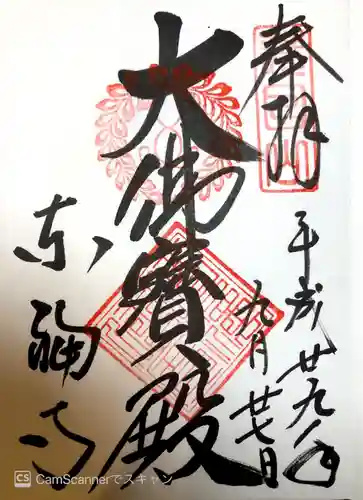 奉拝
平成廿九年
九月廿七日
大佛寳殿
東福寺
CS CamScannerでスキャン